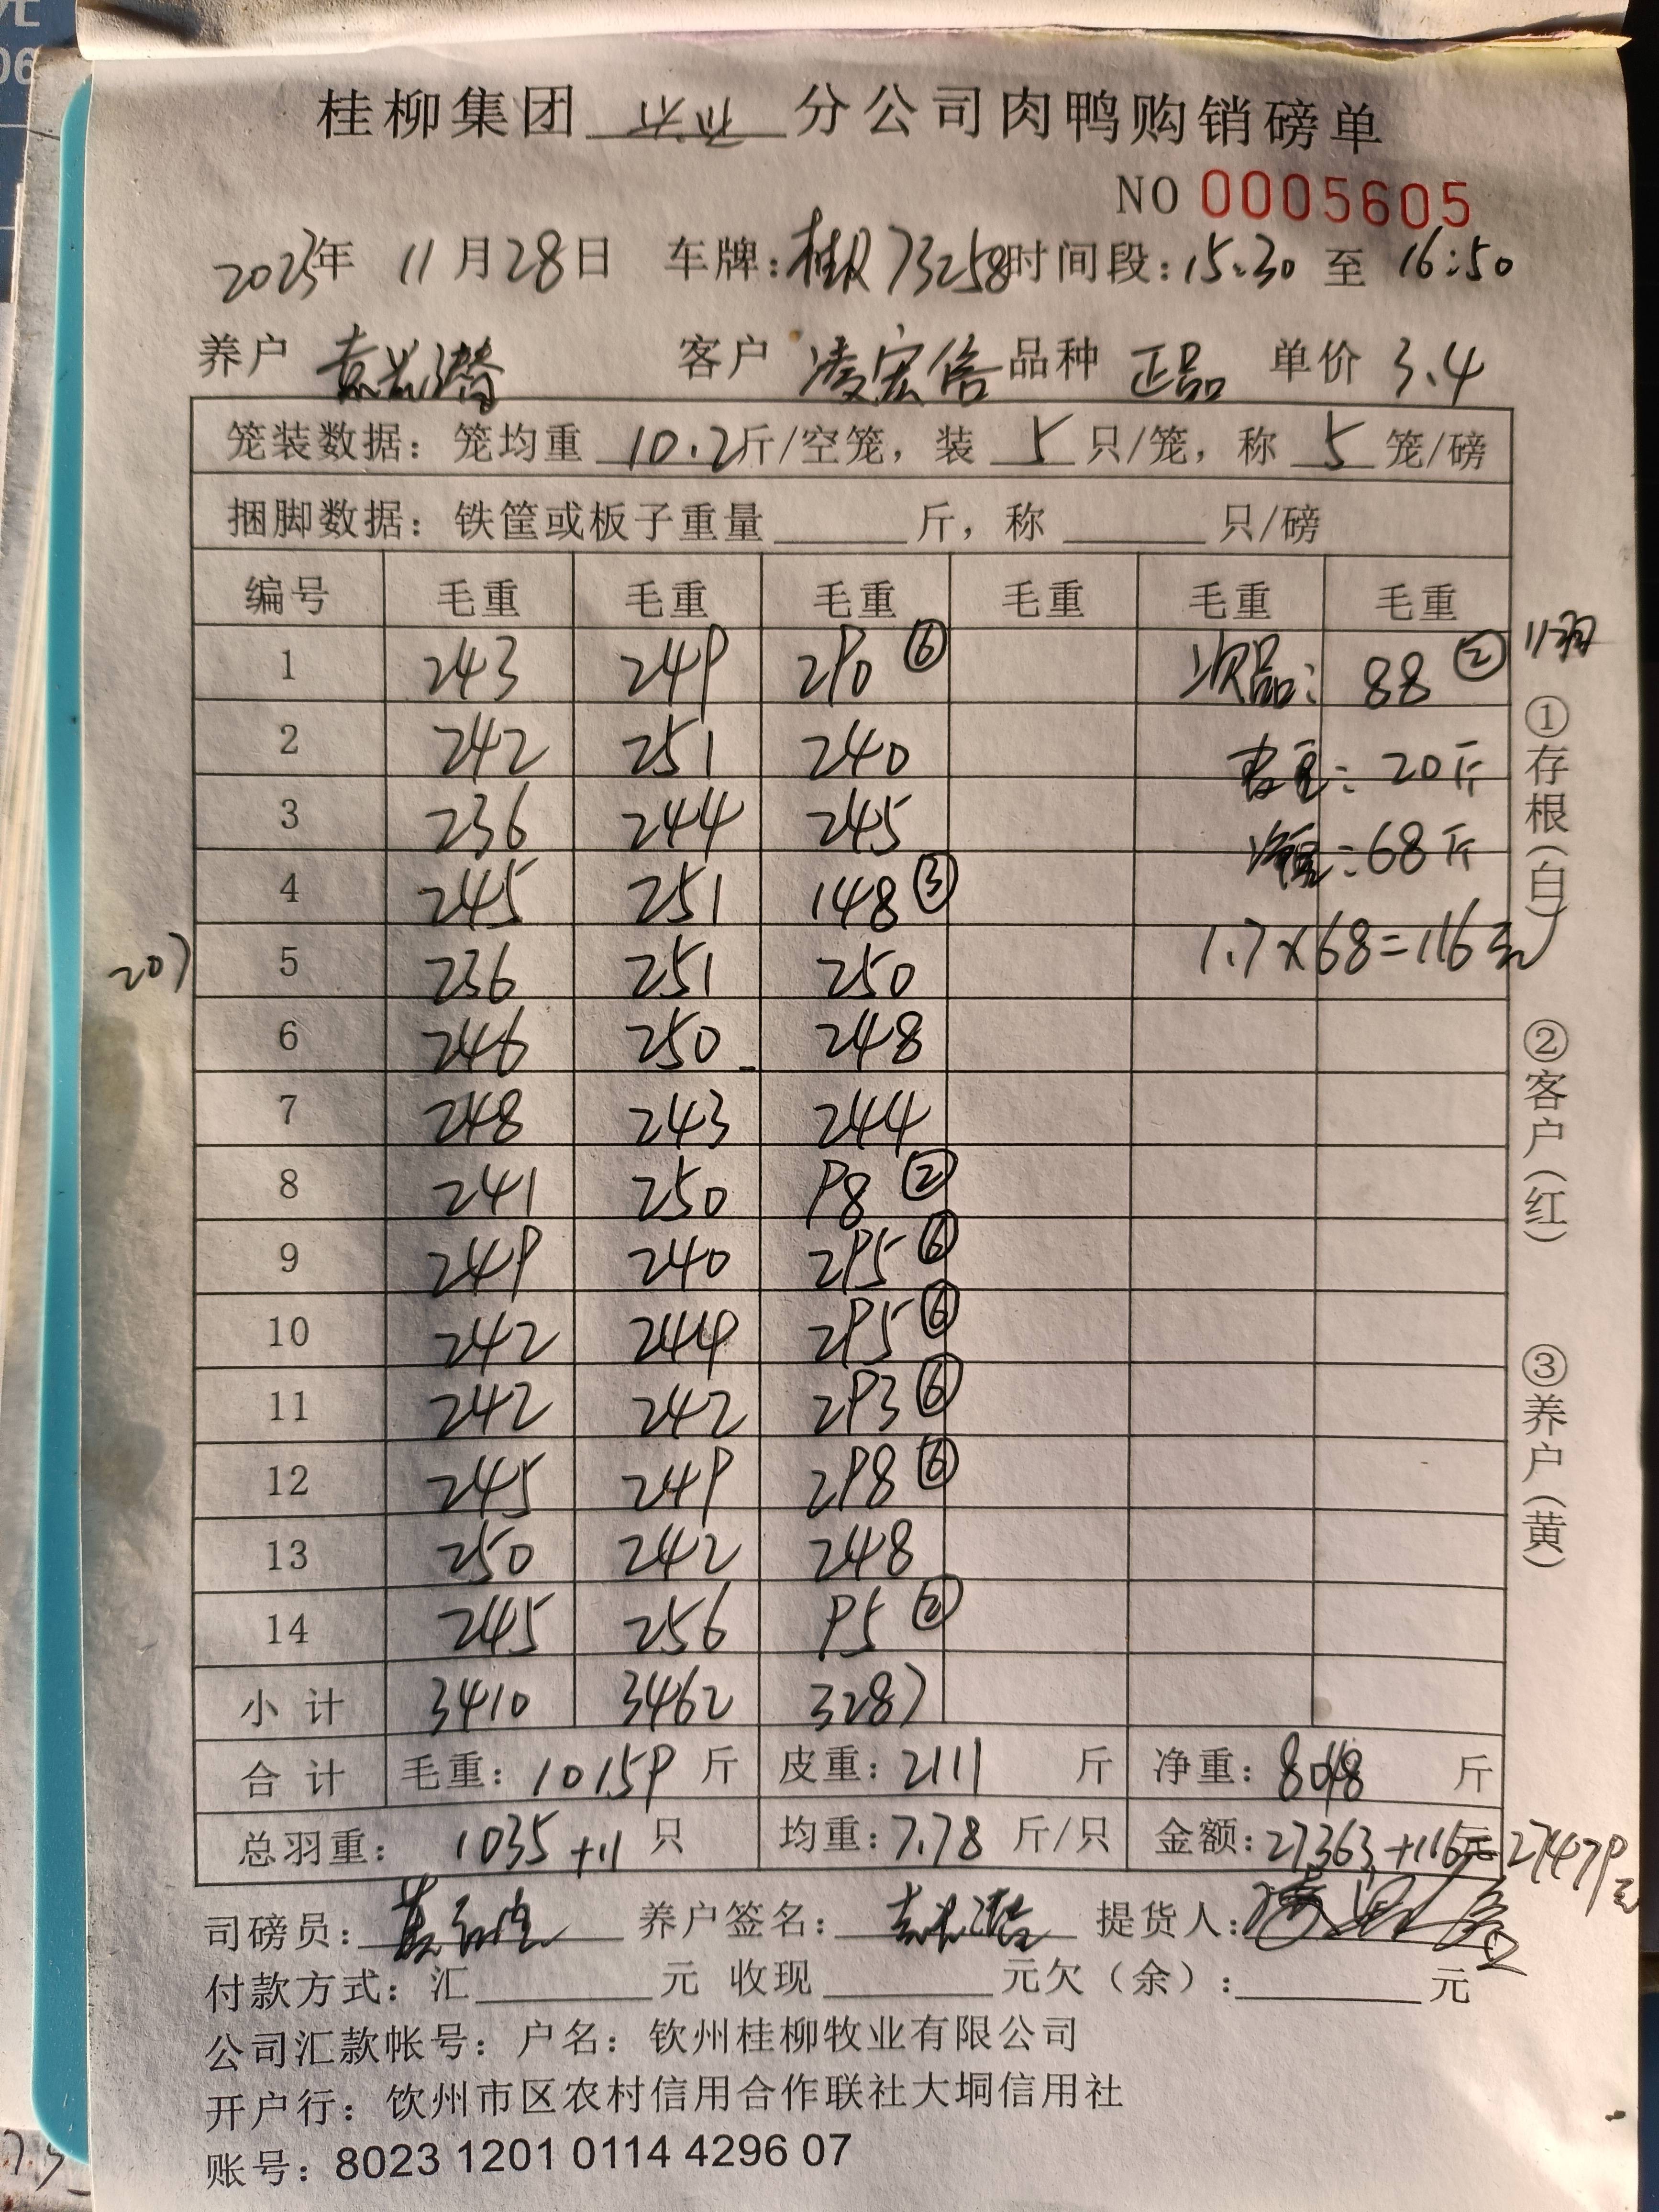 桂柳集团 兴业 分公司肉鸭购销磅单
NO 0005605
2023年 11月28日 车牌:桂R73258 时间段:15:30 至 16:50
养户 客户 凌宏信 品种 正品 单价 3.4
笼装数据: 笼均重 10.2斤/空笼, 装 5 只/笼, 称 5 笼/磅
捆脚数据: 铁筐或板子重量 斤, 称 只/磅
编号 毛重 毛重 毛重 毛重 毛重 毛重
1 243 249 290 ⑥ 次品: 88 ② 11羽
2 242 251 240 皮重: 20斤
3 236 244 245 净重: 68斤
4 245 251 148 ③
207 5 236 251 250 1.7×68=116元
6 246 250 248
7 248 243 244
8 241 250 98 ②
9 249 240 295 ⑥
10 242 244 295 ⑥
11 242 242 293 ⑥
12 245 249 298 ⑥
13 250 242 248
14 245 256 95 ②
小计 3410 3462 3287
合计 毛重: 10159 斤 皮重: 2111 斤 净重: 8048 斤
总羽重: 1035+11 只 均重: 7.78 斤/只 金额: 27363+116元 27479元
司磅员: 养户签名: 提货人:
付款方式: 汇 元 收现 元欠(余): 元
公司汇款帐号: 户名: 钦州桂柳牧业有限公司
开户行: 钦州市区农村信用合作联社大垌信用社
账号: 8023 1201 0114 4296 07
①存根(白) ②客户(红) ③养户(黄)